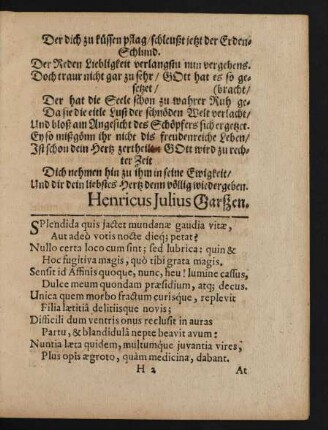 Der dich zu küssen pflag / schleußt jetzt der Erden-
Schlund.
Der Reden Liebligkeit verlangstu nun vergebens.
Doch traur nicht gar zu sehr / GOtt hat es so ge-
setzet / (bracht /
Der hat die Seele schon zu wahrer Ruh ge-
Da sie die eitle Lust der schnöden Welt verlacht /
Und bloß am Angesicht des Schöpfers sich ergetzet.
Ey so mißgönn ihr nicht dis freudenreiche Leben /
Ist schon dein Hertz zertheilt GOtt wird zu rech-
ter Zeit
Dich nehmen hin zu ihm in seine Ewigkeit /
Und dir dein liebstes Hertz denn völlig wiedergeben.
Henricus Julius Garßzen.
SPlendida quis jactet mundanæ gaudia vitæ,
Aut adeò votis nocte dieq; petat?
Nullo certa loco cum sint; sed lubrica: quin &
Hoc fugitiva magis, quò tibi grata magis.
Sensit id Affinis quoque, nunc, heu! lumine cassus,
Dulce meum quondam præsidium, atq; decus.
Unica quem morbo fractum curisque, replevit
Filia lætitiâ delitiisque novis;
Difficili dum ventris onus reclusit in auras
Partu, & blandidulâ nepte beavit avum:
Nuntia læta quidem, multumque juvantia vires,
Plus opis ægroto, quàm medicina, dabant.
H 2 At